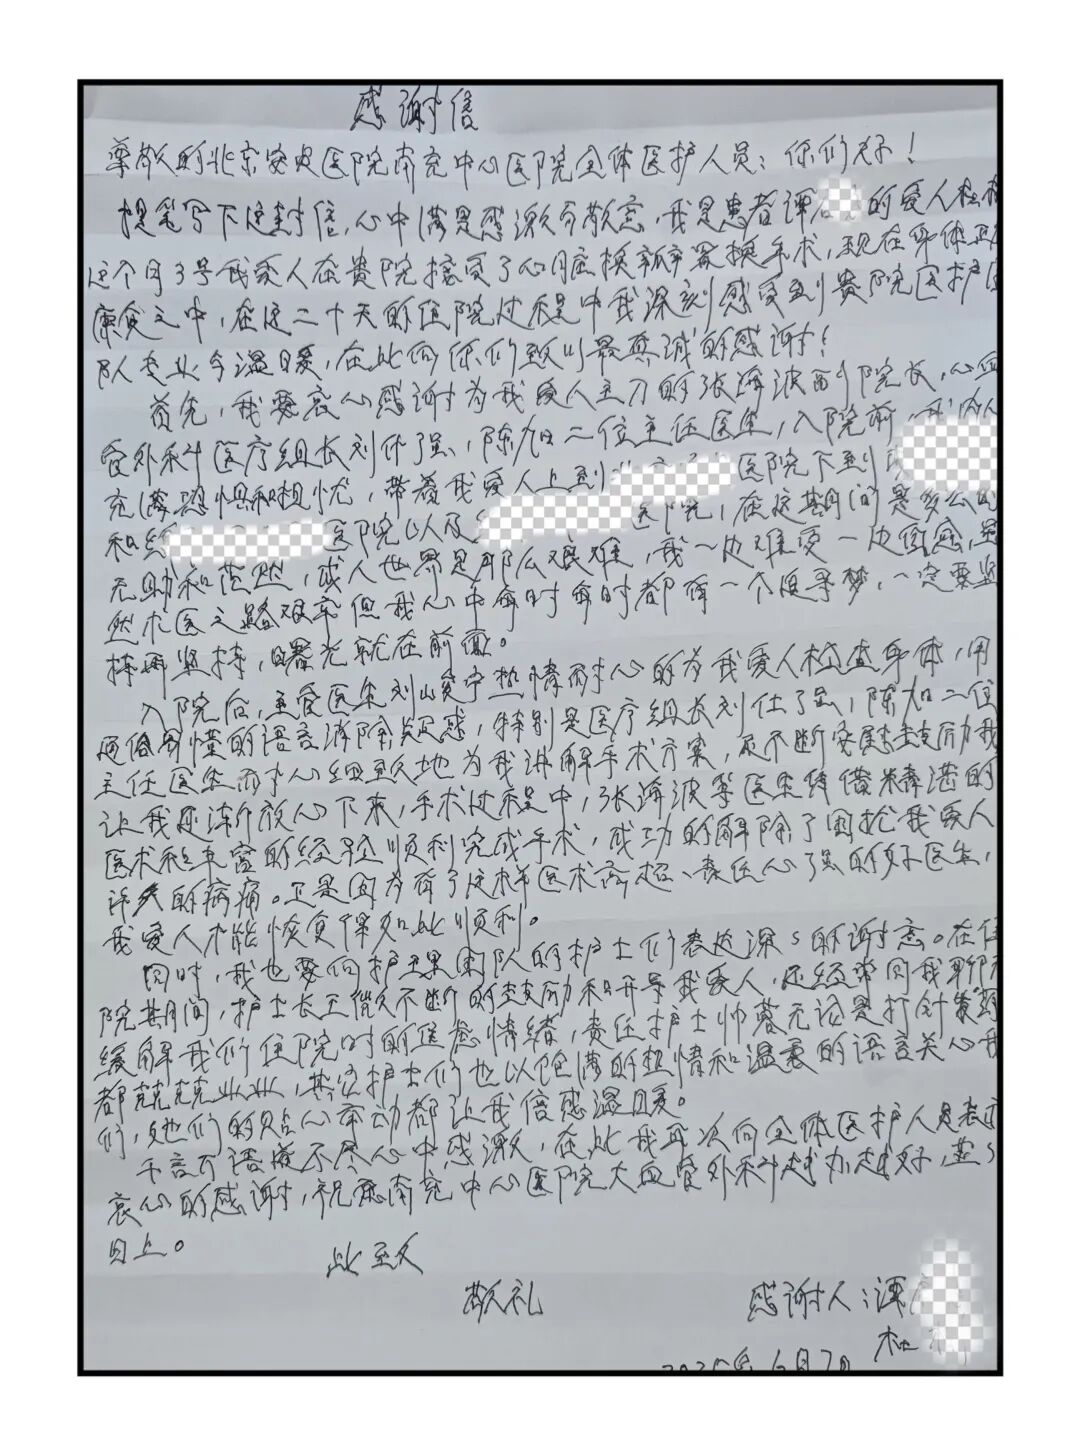 感谢信
尊敬的北京安贞医院南充中心医院全体医护人员：你们好！
提笔写下这封信，心中满是感激与敬意，我是患者谭 的爱人
这个月3号我爱人在贵院接受了心脏换瓣置换手术，现在身体正
康复之中，在这二十天的住院过程中我深刻感受到贵院医护团
队专业与温暖，在此向你们致以最真诚的感谢！
首先，我要衷心感谢为我爱人主刀的张海波副院长，心血
管外科医疗组长刘仕强、陈加二位主任医生，入院前，
充满恐惧和担忧，带着我爱人上到 医院下到
和 医院以及 医院，在这期间是多么的
无助和茫然，成人世界是那么艰难，我一边难受一边
然求医之路艰辛但我心中每时每时都有一个追寻梦，一定要坚
持再坚持，曙光就在前面。
入院后，主管医生刘 热情耐心的为我爱人检查身体，用
通俗易懂的语言消除疑惑，特别是医疗组长刘仕强，陈加二位
主任医生耐心细致地为我讲解手术方案，及不断安慰鼓励我
让我逐渐放心下来，手术过程中，张海波等医生凭借精湛的
医术和丰富的经验顺利完成手术，成功的解除了困扰我爱人
许久的病痛。正是因为有了这样医术高超、责任心强的好医生，
我爱人才能恢复得如此顺利。
同时，我也要向护理团队的护士们表达深深的谢意。在住
院期间，护士长王 不断的鼓励和开导我爱人，还经常同我聊天
缓解我们住院时的焦急情绪，责任护士帅蓉无论是打针发药
都兢兢业业，其它护士们也以饱满的热情和温柔的语言关心我
们，她们的贴心举动都让我倍感温暖。
千言万语道不尽心中感激，在此我再次向全体医护人员表示
衷心的感谢，祝愿南充中心医院大血管外科越办越好，蒸蒸
日上。
此致
敬礼
感谢人：谭
2025年6月7日